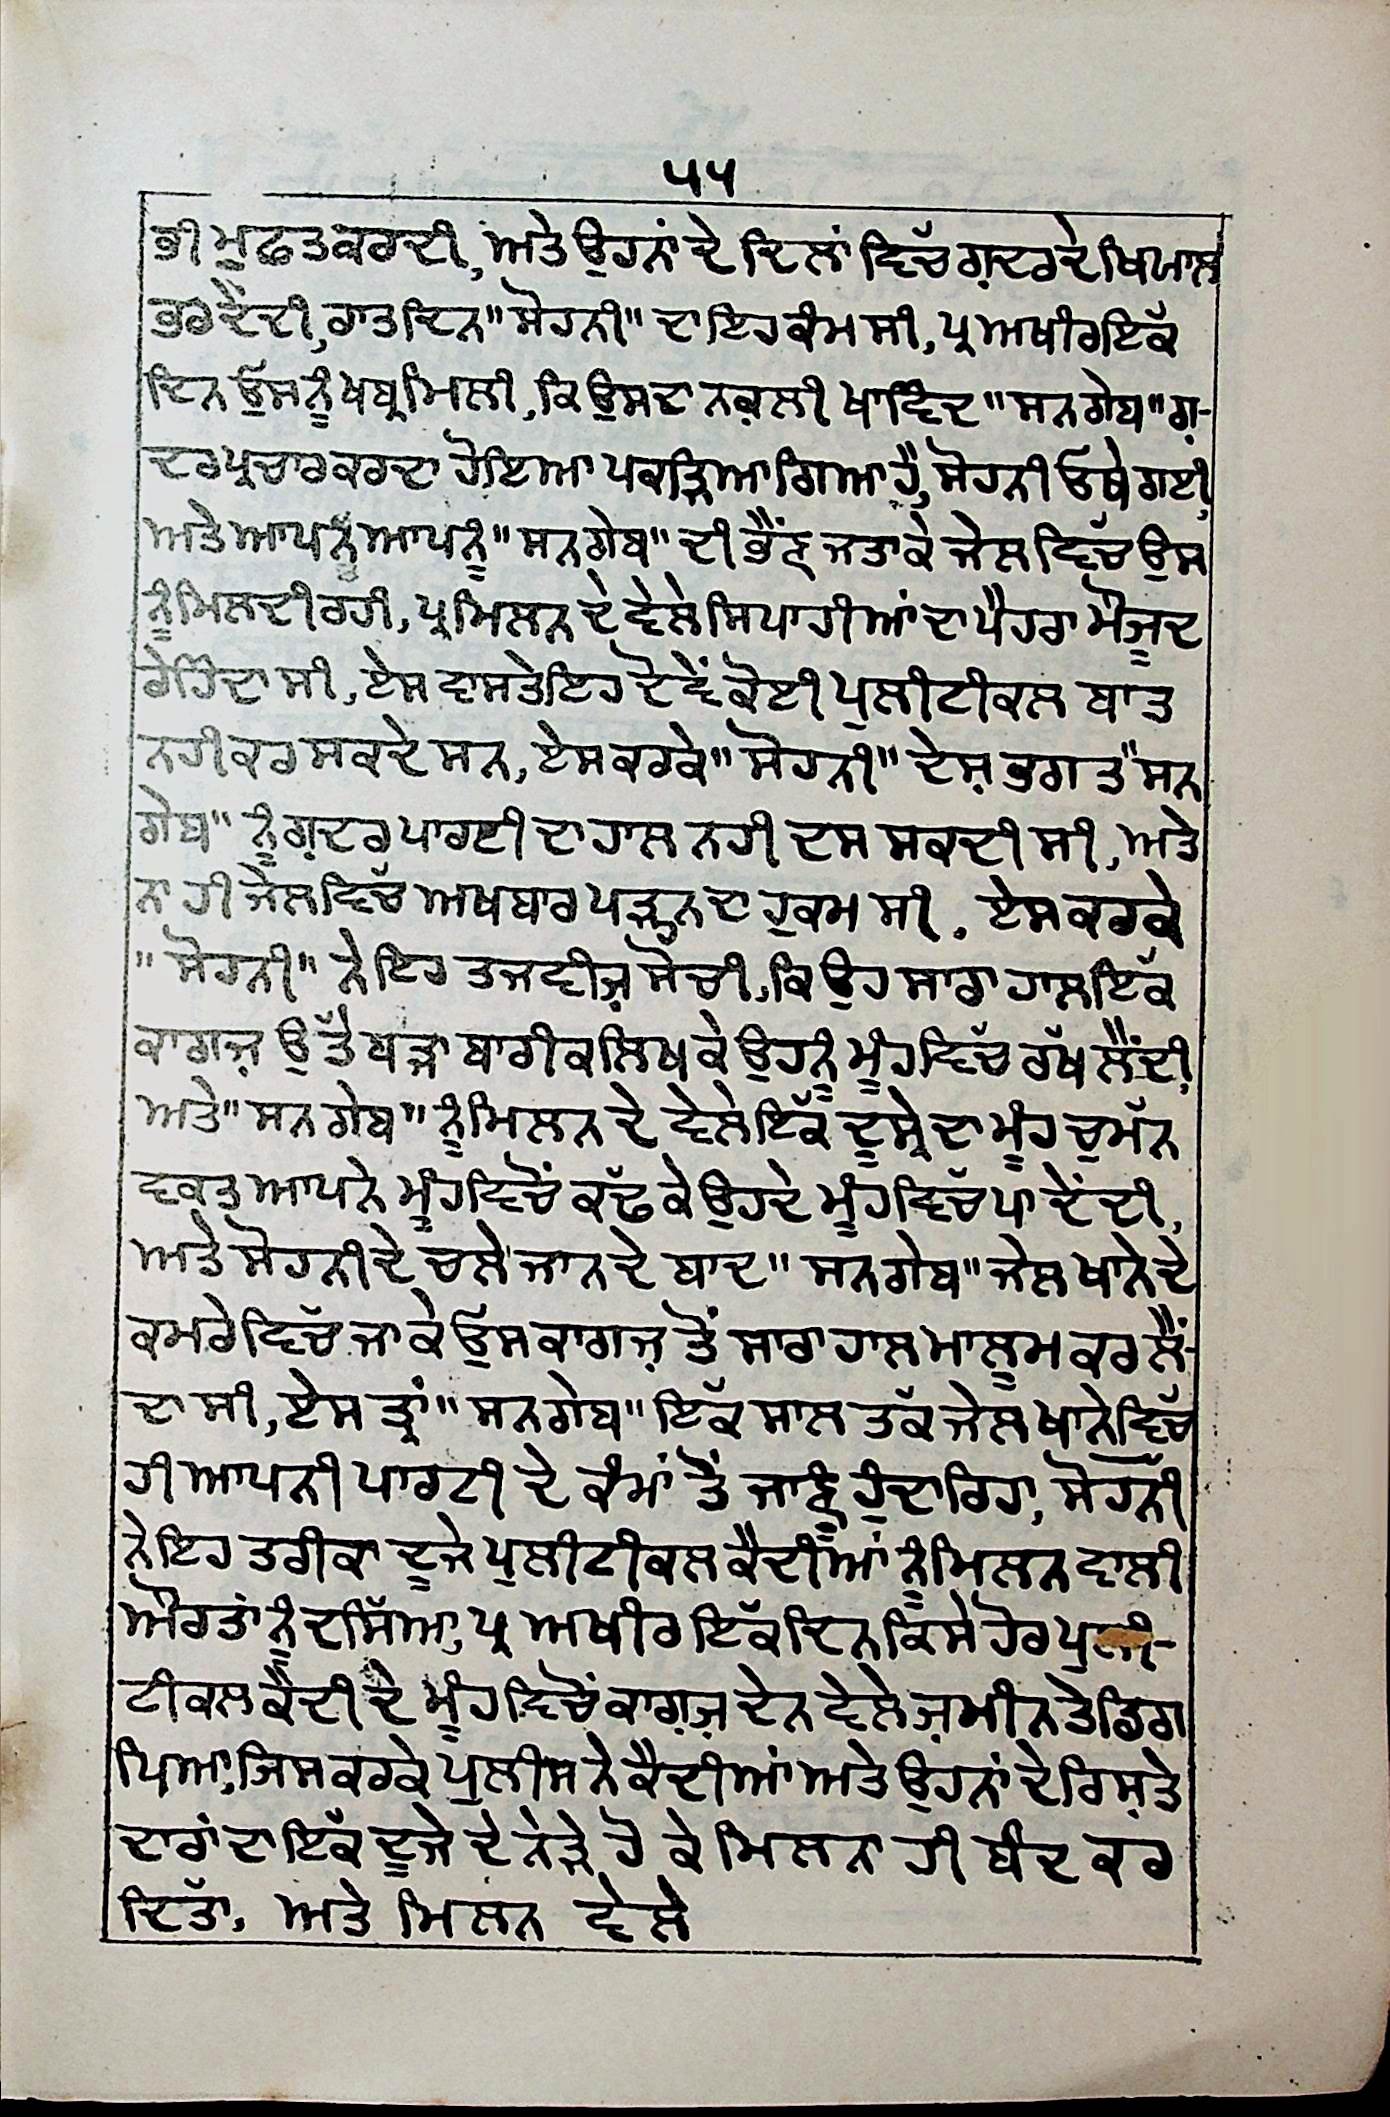 ੫੫
ਭੀ ਮੁਫ਼ਤ ਕਰਦੀ, ਅਤੇ ਉਹਨਾਂ ਦੇ ਦਿਲਾਂ ਵਿੱਚ ਗ਼ਦਰ ਦੇ ਖਿਆਲ
ਭਰ ਦੇਂਦੀ, ਰਾਤ ਦਿਨ "ਸੋਹਨੀ" ਦਾ ਇਹ ਕੰਮ ਸੀ, ਪ੍ਰ ਅਖੀਰ ਇੱਕ
ਦਿਨ ਉੱਸ ਨੂੰ ਖਬ੍ਰ ਮਿਲੀ, ਕਿ ਉਸਦਾ ਨਕਲੀ ਖਾਵਿੰਦ "ਸਨਗੇਬ" ਗ਼-
ਦਰ ਪ੍ਰਚਾਰ ਕਰਦਾ ਹੋਇਆ ਪਕੜਿਆ ਗਿਆ ਹੈ, ਸੋਹਨੀ ਓਥੇ ਗਈ,
ਅਤੇ ਆਪਨੂੰ ਆਪ ਨੂੰ "ਸਨਗੇਬ" ਦੀ ਭੈਂਣ ਜਤਾਕੇ ਜੇਲ ਵਿੱਚ ਉਸ
ਨੂੰ ਮਿਲਦੀ ਰਹੀ, ਪ੍ਰ ਮਿਲਨ ਦੇ ਵੇਲੇ ਸਿਪਾਹੀਆਂ ਦਾ ਪੈਹਰਾ ਮੌਜੂਦ
ਰੇਹਿੰਦਾ ਸੀ, ਏਸ ਵਾਸਤੇ ਇਹ ਦੋਵੇਂ ਕੋਈ ਪੁਲੀਟੀਕਲ ਬਾਤ
ਨਹੀ ਕਰ ਸਕਦੇ ਸਨ, ਏਸ ਕਰਕੇ "ਸੋਹਨੀ" ਦੇਸ਼ ਭਗਤ "ਸਨ
ਗੇਬ" ਨੂੰ ਗ਼ਦਰ ਪਾਰਟੀ ਦਾ ਹਾਲ ਨਹੀ ਦਸ ਸਕਦੀ ਸੀ, ਅਤੇ
ਨਾ ਹੀ ਜੇਲ ਵਿੱਚ ਅਖਬਾਰ ਪੜ੍ਹਨ ਦਾ ਹੁਕਮ ਸੀ. ਏਸ ਕਰਕੇ
"ਸੋਹਨੀ" ਨੇ ਇਹ ਤਜਵੀਜ਼ ਸੋਚੀ, ਕਿ ਉਹ ਸਾਰਾ ਹਾਲ ਇੱਕ
ਕਾਗਜ਼ ਉੱਤੇ ਬੜਾ ਬਾਰੀਕ ਲਿਖਕੇ ਉਹਨੂੰ ਮੂੰਹ ਵਿੱਚ ਰੱਖ ਲੈਂਦੀ,
ਅਤੇ "ਸਨਗੇਬ" ਨੂੰ ਮਿਲਨ ਦੇ ਵੇਲੇ ਇੱਕ ਦੂਸ੍ਰੇ ਦਾ ਮੂੰਹ ਚੁਮੱਨ
ਵਕਤ ਆਪਨੇ ਮੂੰਹ ਵਿਚੋਂ ਕੱਢਕੇ ਉਹਦੇ ਮੂੰਹ ਵਿੱਚ ਪਾ ਦੇਂਦੀ,
ਅਤੇ ਸੋਹਨੀ ਦੇ ਚਲੇ ਜਾਨ ਦੇ ਬਾਦ "ਸਨਗੇਬ" ਜੇਲਖਾਨੇ ਦੇ
ਕਮਰੇ ਵਿੱਚ ਜਾਕੇ ਉਸ ਕਾਗਜ਼ ਤੋਂ ਸਾਰਾ ਹਾਲ ਮਾਲੂਮ ਕਰ ਲੈਂ-
ਦਾ ਸੀ, ਏਸ ਤ੍ਰਾਂ "ਸਨਗੇਬ" ਇੱਕ ਸਾਲ ਤੱਕ ਜੇਲਖਾਨੇ ਵਿੱਚ
ਹੀ ਆਪਨੀ ਪਾਰਟੀ ਦੇ ਕੰਮਾਂ ਤੋਂ ਜਾਣੂ ਹੁੰਦਾ ਰਿਹਾ, ਸੋਹਨੀ
ਨੇ ਇਹ ਤਰੀਕਾ ਦੂਜੇ ਪੁਲੀਟੀਕਲ ਕੈਦੀਆਂ ਨੂੰ ਮਿਲਨ ਵਾਲੀ
ਔਰਤਾਂ ਨੂੰ ਦਸਿੱਆ, ਪ੍ਰ ਅਖੀਰ ਇੱਕ ਦਿਨ ਕਿਸੇ ਹੋਰ ਪੁਲੀ-
ਟੀਕਲ ਕੈਦੀ ਦੇ ਮੂੰਹ ਵਿਚੋਂ ਕਾਗ਼ਜ਼ ਦੇਨ ਵੇਲੇ ਜ਼ਮੀਨ ਤੇ ਡਿਗ
ਪਿਆ, ਜਿਸ ਕਰਕੇ ਪੁਲੀਸ ਨੇ ਕੈਦੀਆਂ ਅਤੇ ਉਹਨਾਂ ਦੇ ਰਿਸ਼ਤੇ
ਦਾਰਾਂ ਦਾ ਇੱਕ ਦੂਜੇ ਦੇ ਨੇੜੇ ਹੋ ਕੇ ਮਿਲਨਾ ਹੀ ਬੰਦ ਕਰ
ਦਿੱਤਾ, ਅਤੇ ਮਿਲਨ ਵੇਲੇ